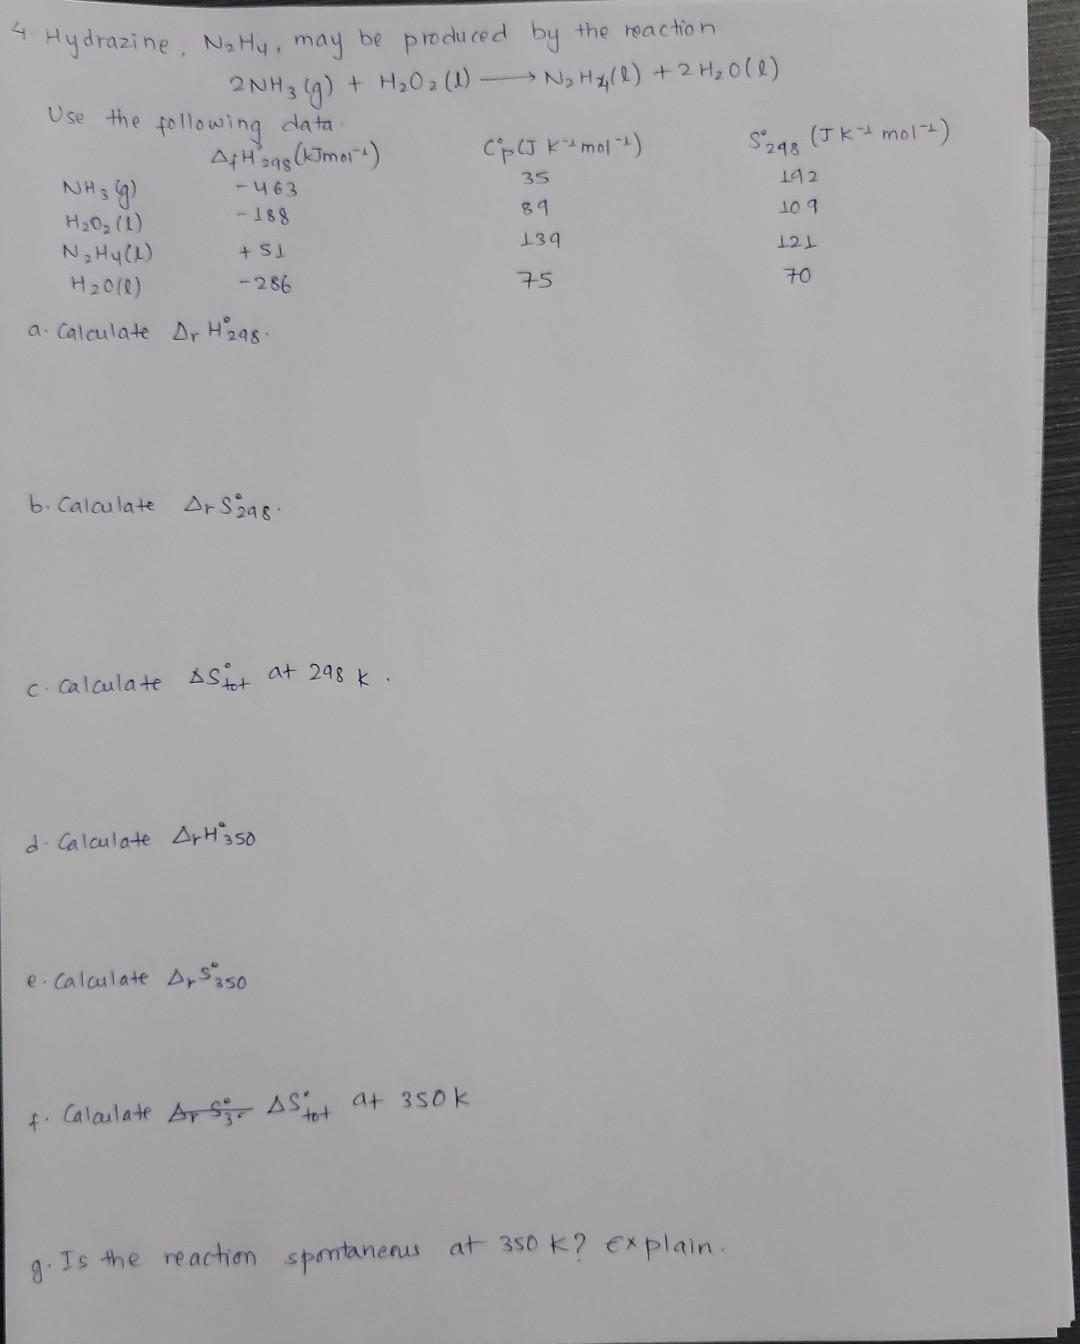 4. Hydrazine, N₂H₄, may be produced by the reaction
2NH₃(g) + H₂O₂(l) ⟶ N₂H₄(l) + 2H₂O(l)
Use the following data.
ΔfH°298(kJmol⁻¹) C°p(J K⁻¹mol⁻¹) S°298 (J K⁻¹ mol⁻¹)
NH₃(g) -463 35 192
H₂O₂(l) -188 89 109
N₂H₄(l) +51 139 121
H₂O(l) -286 75 70
a. Calculate ΔrH°298.
b. Calculate ΔrS°298.
c. Calculate ΔS°tot at 298 K.
d. Calculate ΔrH°350
e. Calculate ΔrS°350
f. Calculate ΔS°tot at 350K
g. Is the reaction spontaneous at 350 K? Explain.